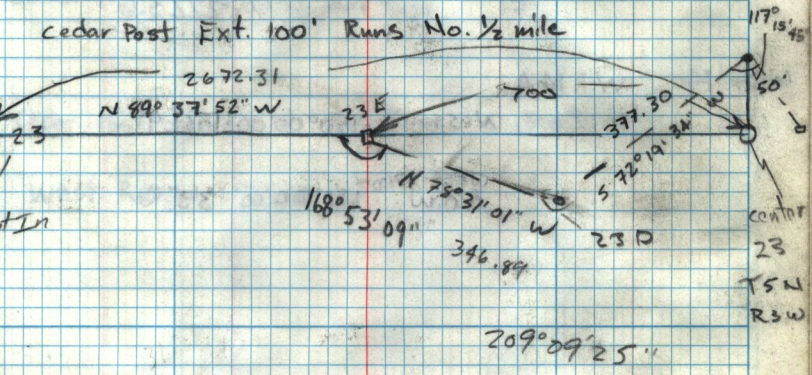 Cedar Post Ext. 100' Runs No. 1/2 mile
117° 15' 45"
2672.31
N 89° 37' 52" W
700
50'
23
23 E
377.30
S 72° 19' 34" W
N 78° 31' 01" W
168° 53' 09"
346.89
23 D
center
23
T5N
R3W
209° 09' 25"